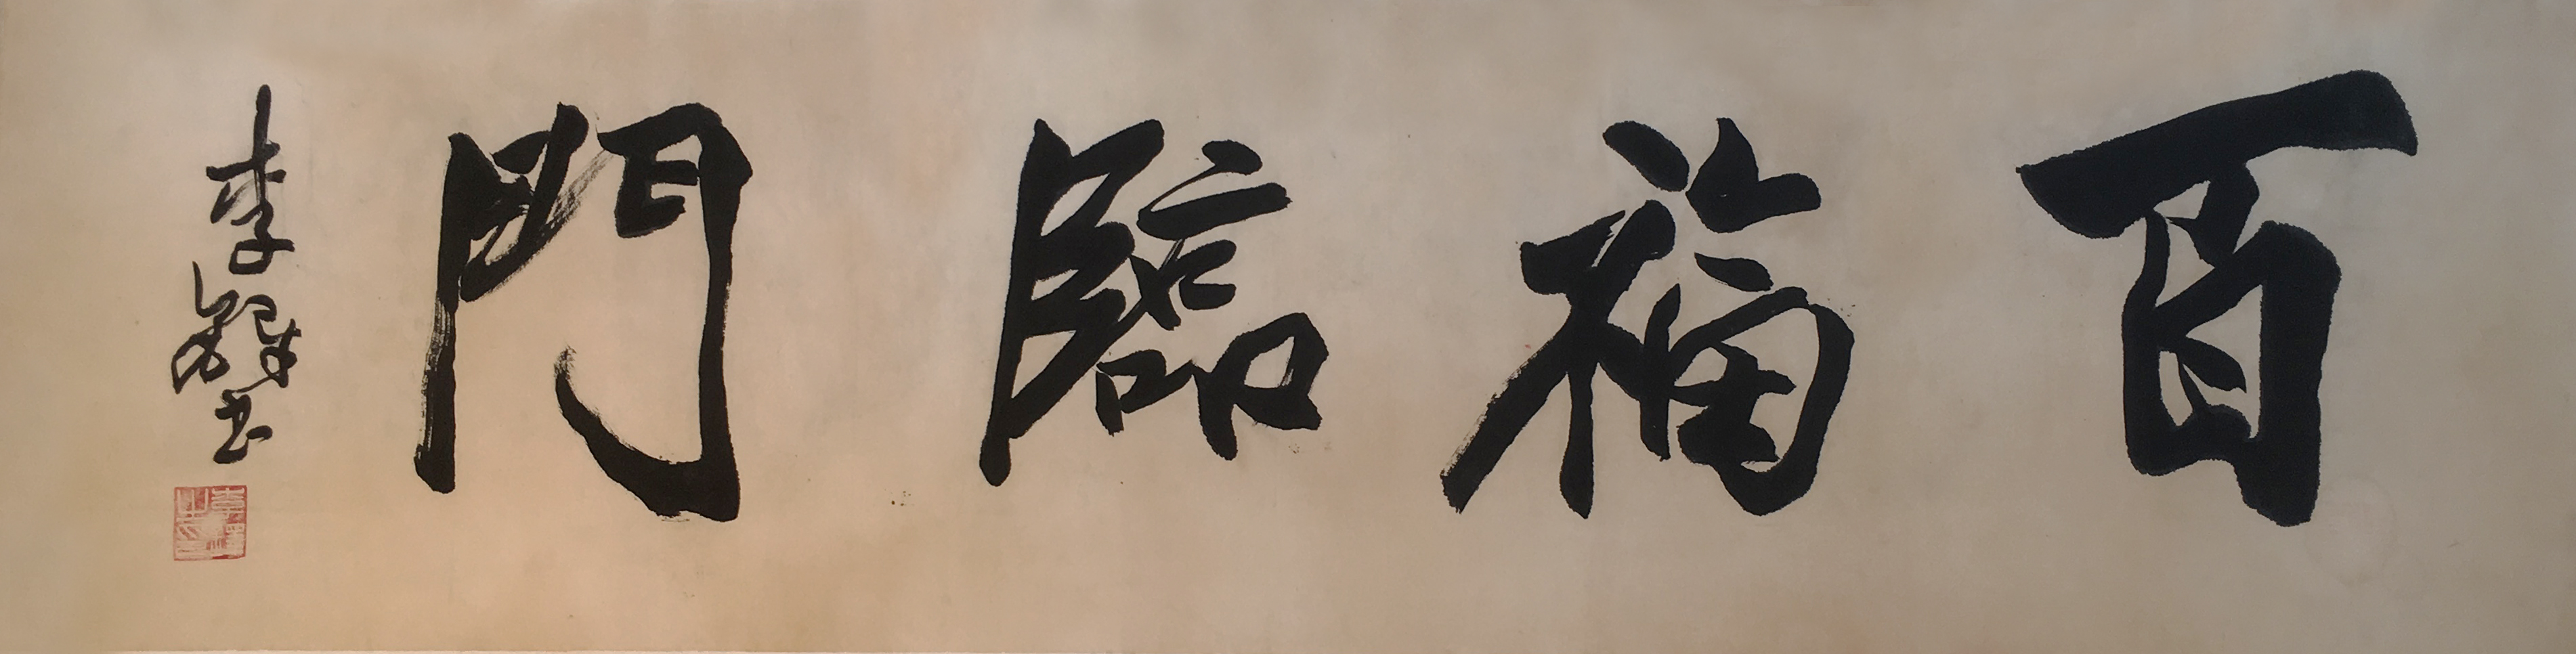 百福臨門
李鐸書